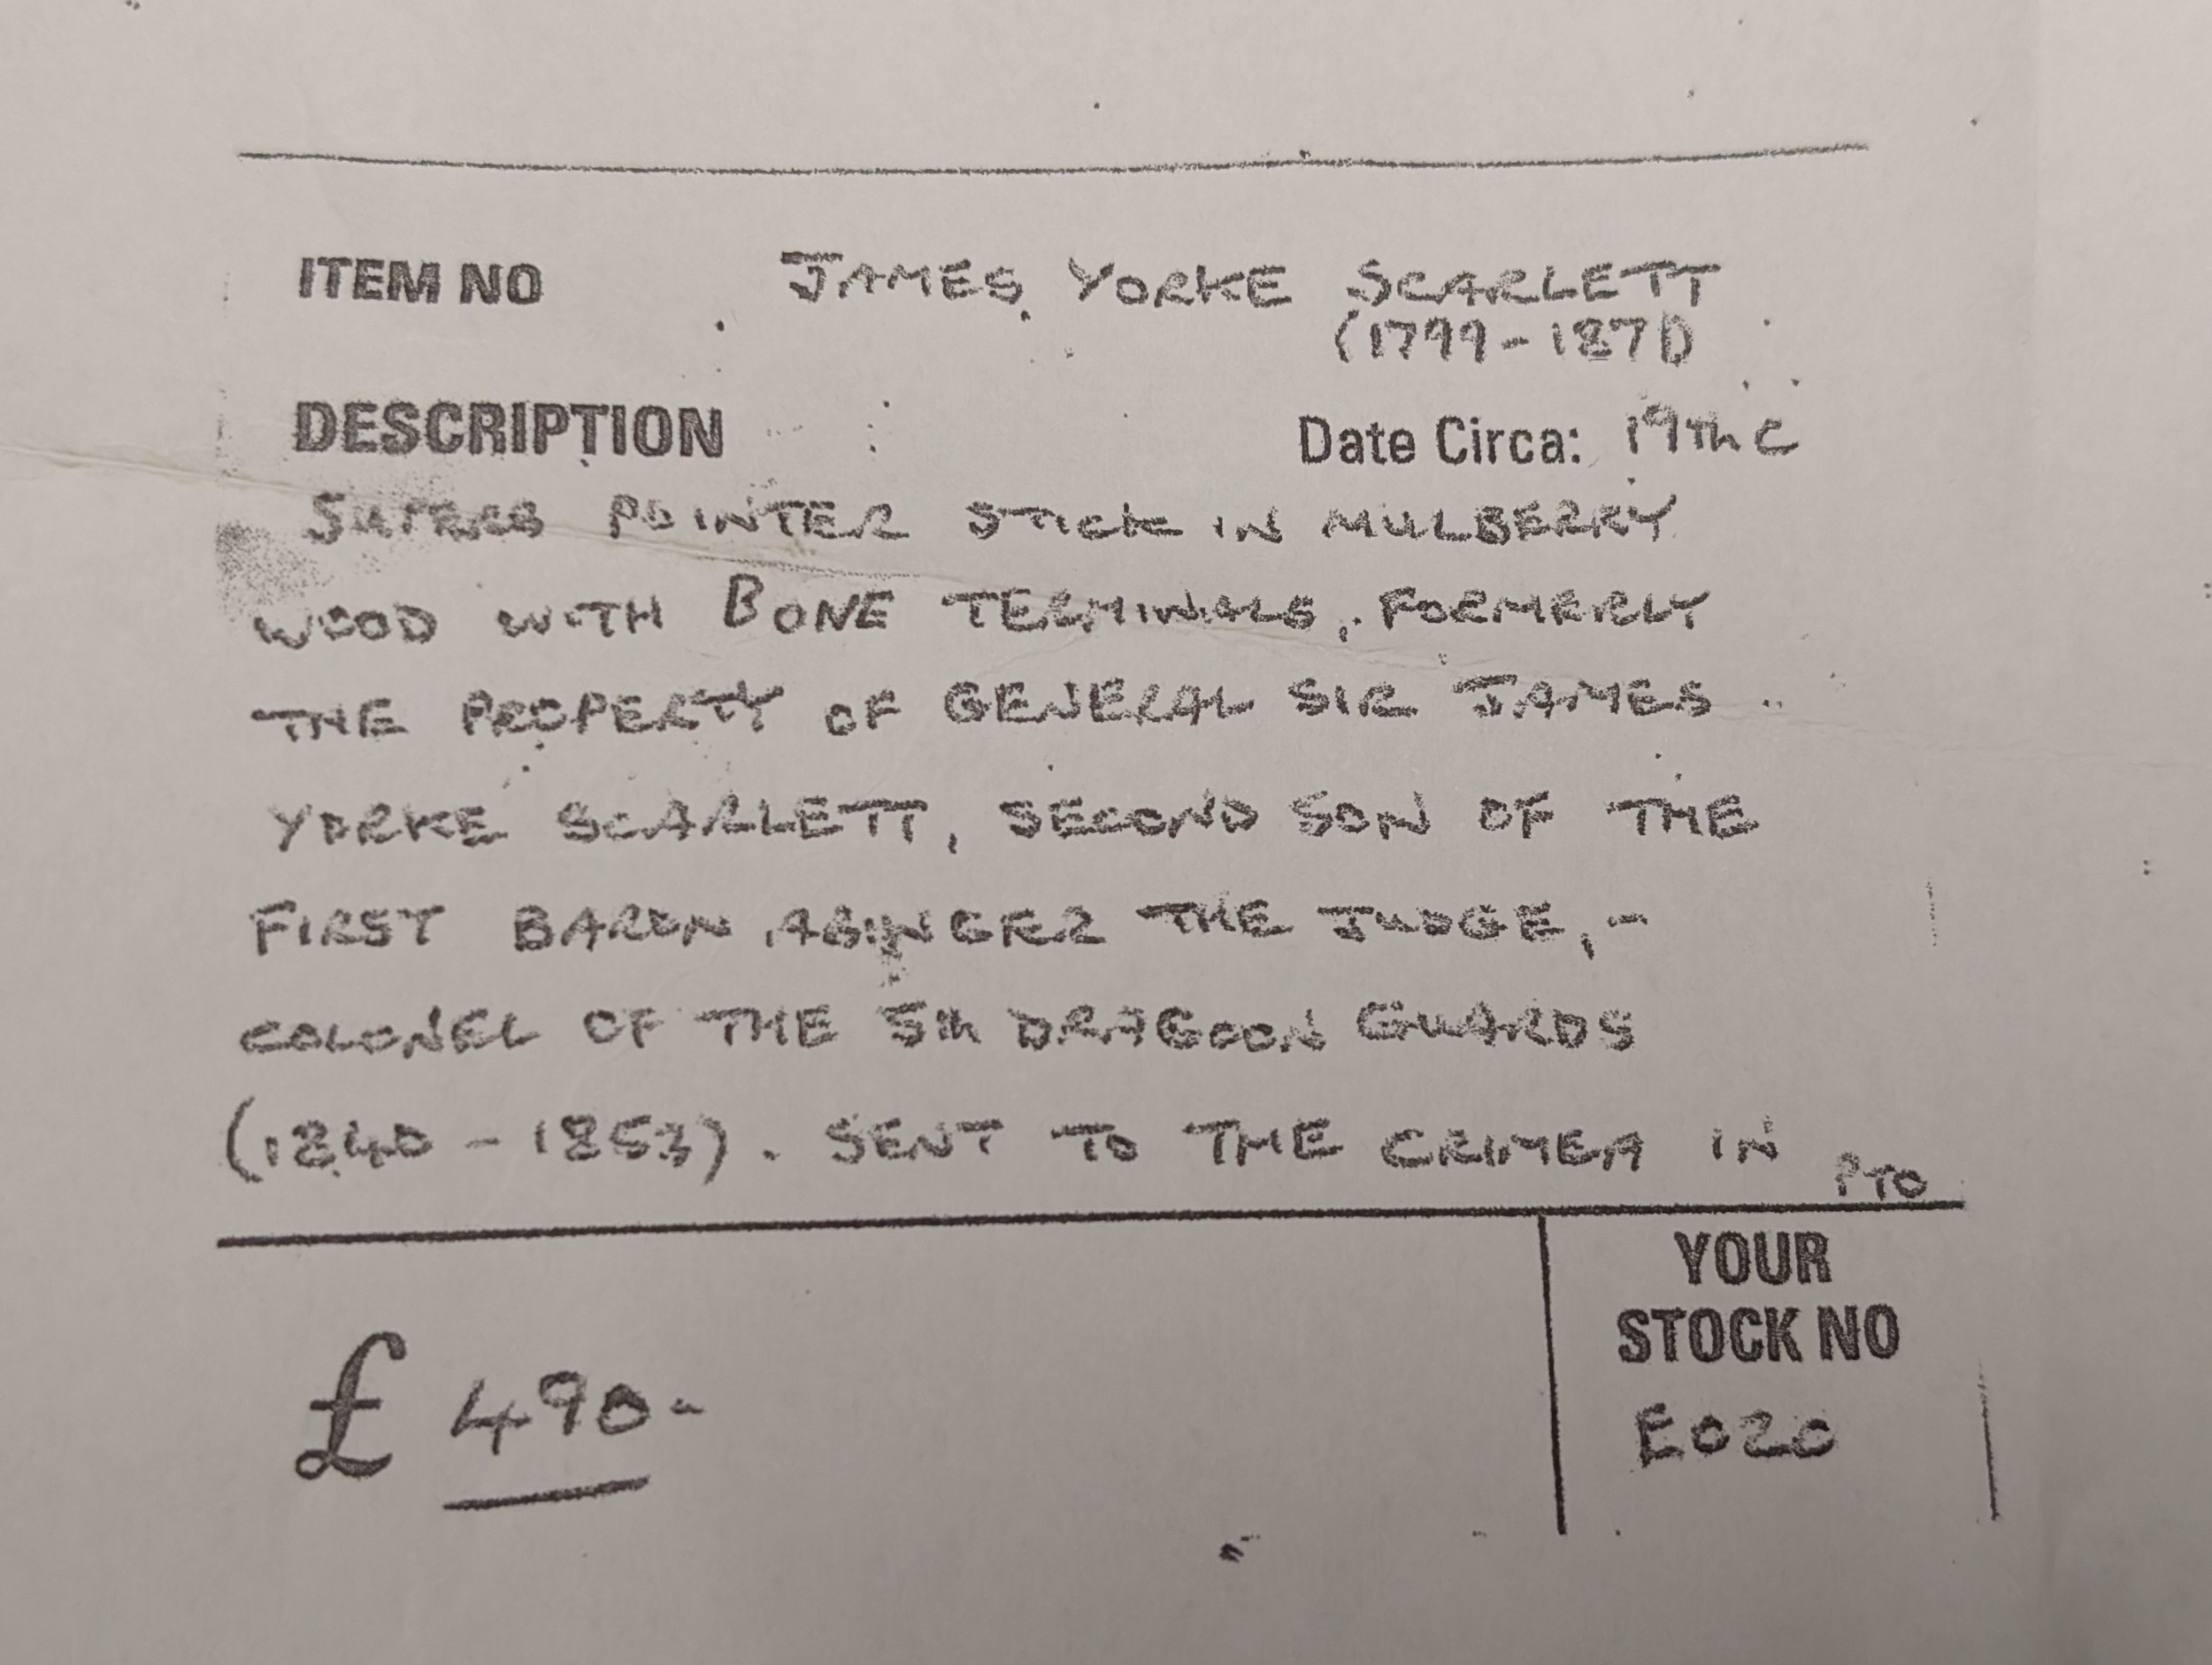 ITEM NO JAMES YORKE SCARLETT
(1799-1871)
DESCRIPTION Date Circa: 19TH C
SUPERB POINTER STICK IN MULBERRY
WOOD WITH BONE TERMINALS, FORMERLY
THE PROPERTY OF GENERAL SIR JAMES
YORKE SCARLETT, SECOND SON OF THE
FIRST BARON ABINGER THE JUDGE,-
COLONEL OF THE 5TH DRAGOON GUARDS
(1840-1853). SENT TO THE CRIMEA IN PTO
£ 490-
YOUR
STOCK NO
E020